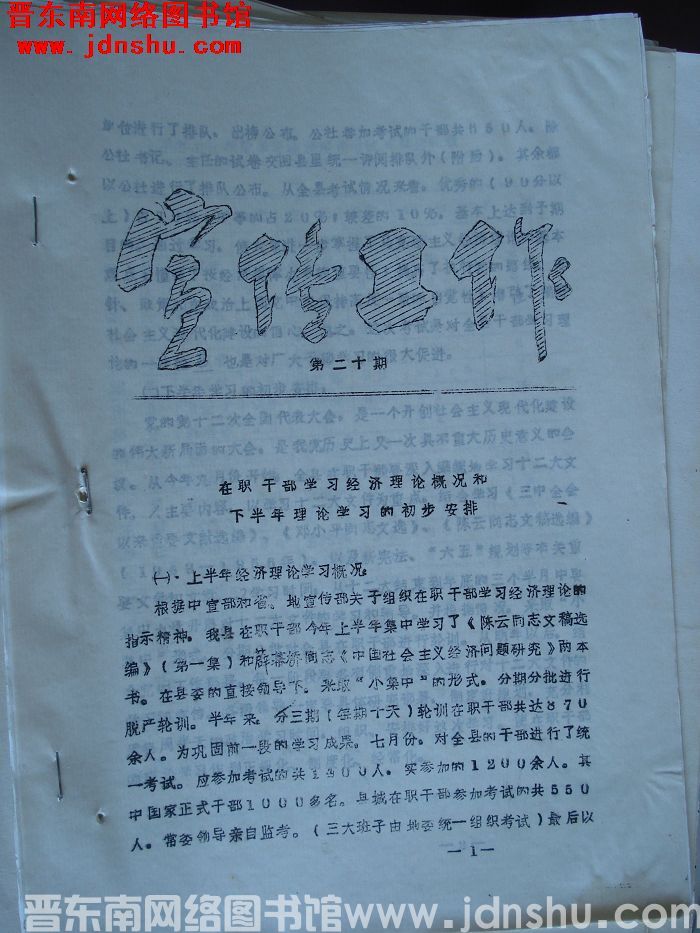 晋东南网络图书馆
www.jdnshu.com
宣传工作
第二十期
在职干部学习经济理论概况和
下半年理论学习的初步安排
㈠·上半年经济理论学习概况:
根据中宣部和省、地宣传部关于组织在职干部学习经济理论的
指示精神。我县在职干部今年上半年集中学习了《陈云同志文稿选
编》(第一集)和薛暮桥同志《中国社会主义经济问题研究》两本
书。在县委的直接领导下。采取“小集中”的形式。分期分批进行
脱产轮训。半年来。分三期(每期十天)轮训在职干部共达870
余人。为巩固前一段的学习成果。七月份。对全县的干部进行了统
一考试。应参加考试的共1300人。实参加的1200余人。其
中国家正式干部1000多名。县城在职干部参加考试的共550
人。常委领导亲自监考。(三大班子由地委统一组织考试)最后以
—1—
晋东南网络图书馆www.jdnshu.com